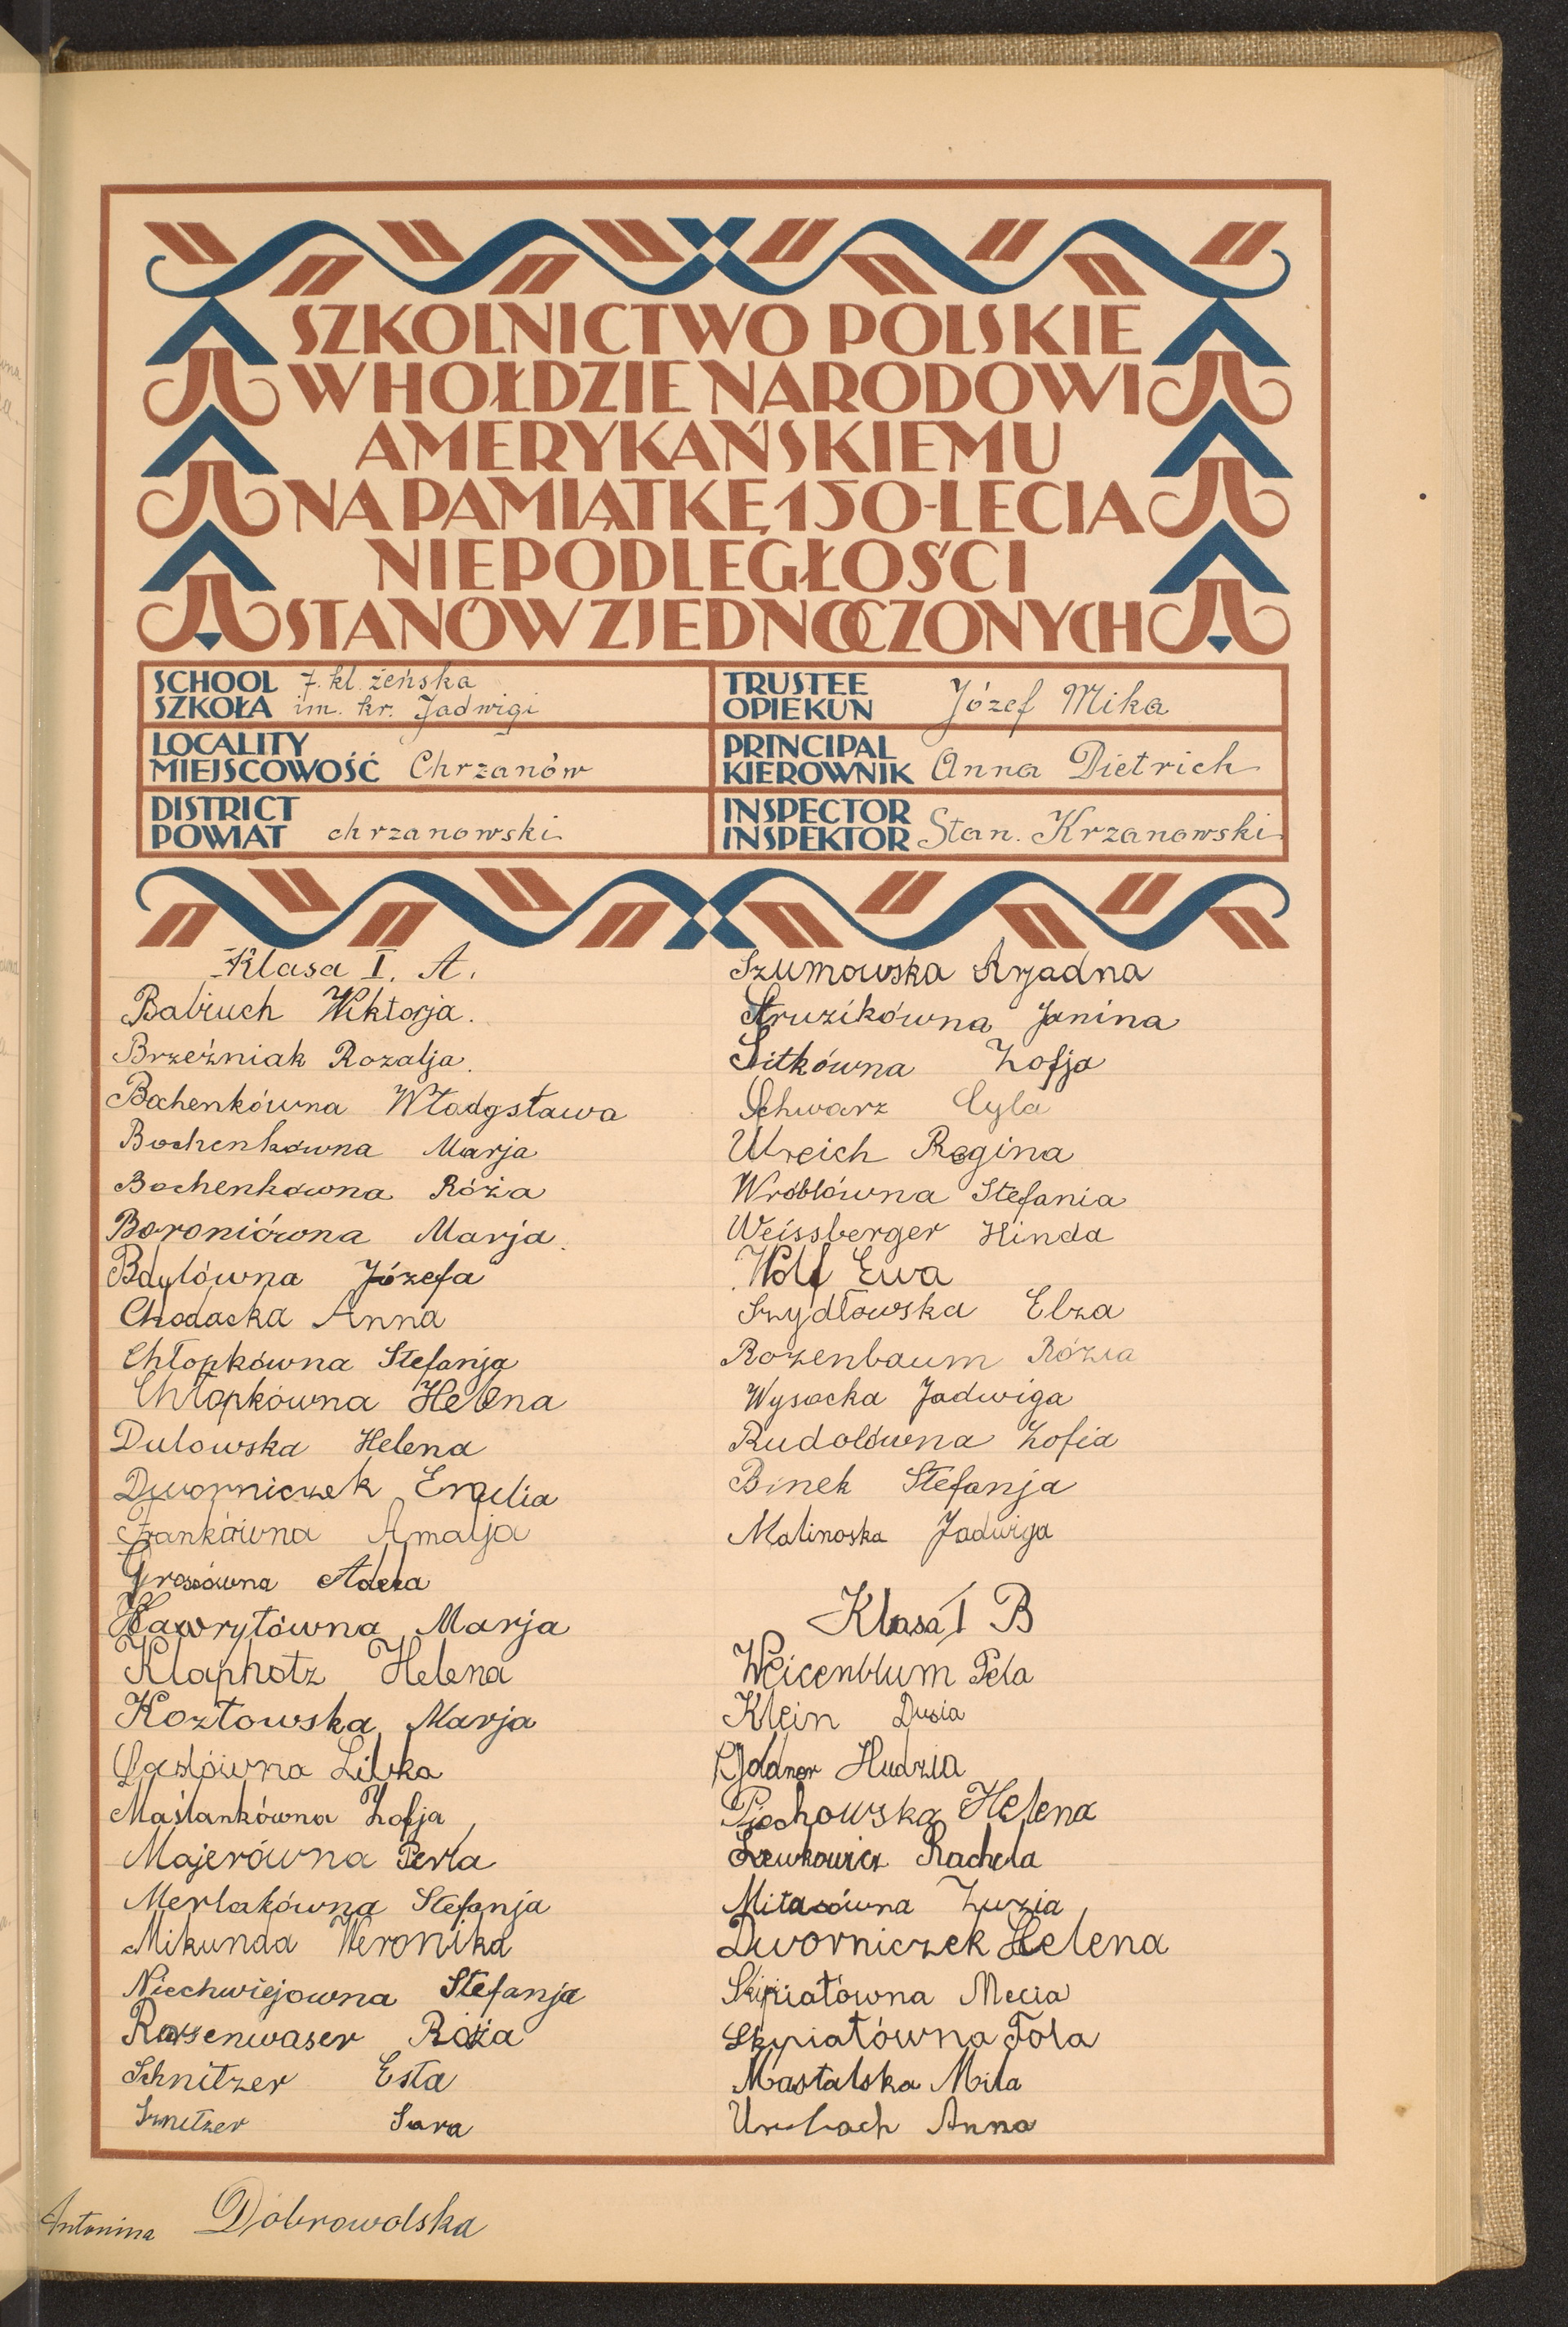 SZKOLNICTWO POLSKIE
W HOŁDZIE NARODOWI
AMERYKAŃSKIEMU
NA PAMIĄTKĘ 150-LECIA
NIEPODLEGŁOŚCI
STANÓW ZJEDNOCZONYCH
SCHOOL
SZKOŁA
7. kl. żeńska
im. kr. Jadwigi
TRUSTEE
OPIEKUN
Józef Mika
LOCALITY
MIEJSCOWOŚĆ
Chrzanów
PRINCIPAL
KIEROWNIK
Anna Dietrich
DISTRICT
POWIAT
chrzanowski
INSPECTOR
INSPEKTOR
Stan. Krzanowski
Klasa I. A.
Babiuch Wiktorja.
Brzeźniak Rozalja.
Bochenkówna Władysława
Bochenkówna Marja
Bochenkówna Róża
Boroniówna Marja.
Bdylówna Józefa
Chodacka Anna
Chłopkówna Stefanja
Chłopkówna Helena
Dulowska Helena
Dworniczek Emilia
Frankówna Amalja
Grossówna Adela
Hawrytówna Marja
Klapholz Helena
Kozłowska Marja
Libka
Maślankówna Zofja
Majerówna Perla
Merlakówna Stefanja
Mikunda Weronika
Niechwiejowna Stefanja
Rosenwaser Róża
Schnitzer Esta
Sznitzer Sara
Szumowska Arjadna
Struzikówna Janina
Sitkówna Zofja
Schwarz Cyla
Ulreich Regina
Wróblówna Stefania
Weissberger Hinda
Wolf Ewa
Szydłowska Elza
Rozenbaum Rózia
Wysocka Jadwiga
Rudolówna Zofia
Binek Stefanja
Malinoska Jadwiga
Klasa I B
Weicenblum Pela
Klein Dusia
Goldner Hudzia
Piechowska Helena
Lewkowicz Rachela
Mitasówna Zuzia
Dworniczek Helena
Skipiatówna Mecia
Skpiatówna Tola
Mastalska Mila
Urbach Anna
Antonina Dobrowolska